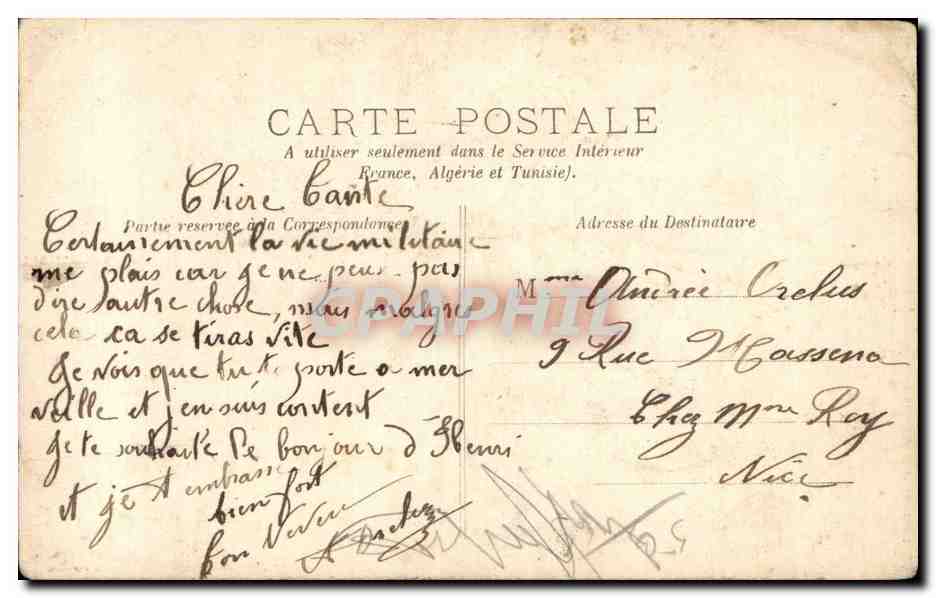 CARTE POSTALE
A utiliser seulement dans le Service Intérieur
France, Algérie et Tunisie).
Chère tante
Partie reservée à la Correspondance
Adresse du Destinataire
Certainement la vie militaire
me plais car je ne peus pas
dire autre chose, mais malgré
cela ca se tiras vite
Je vois que tu te porte a mer
vaille et j'en suis content
Je te souhaite le bonjour d'Henri
et je t'embrasse
bien fort
ton neveu
Mme Andrée Orelus
9 Rue Massena
Chez Mme Roy
Nice
CPAPHIL